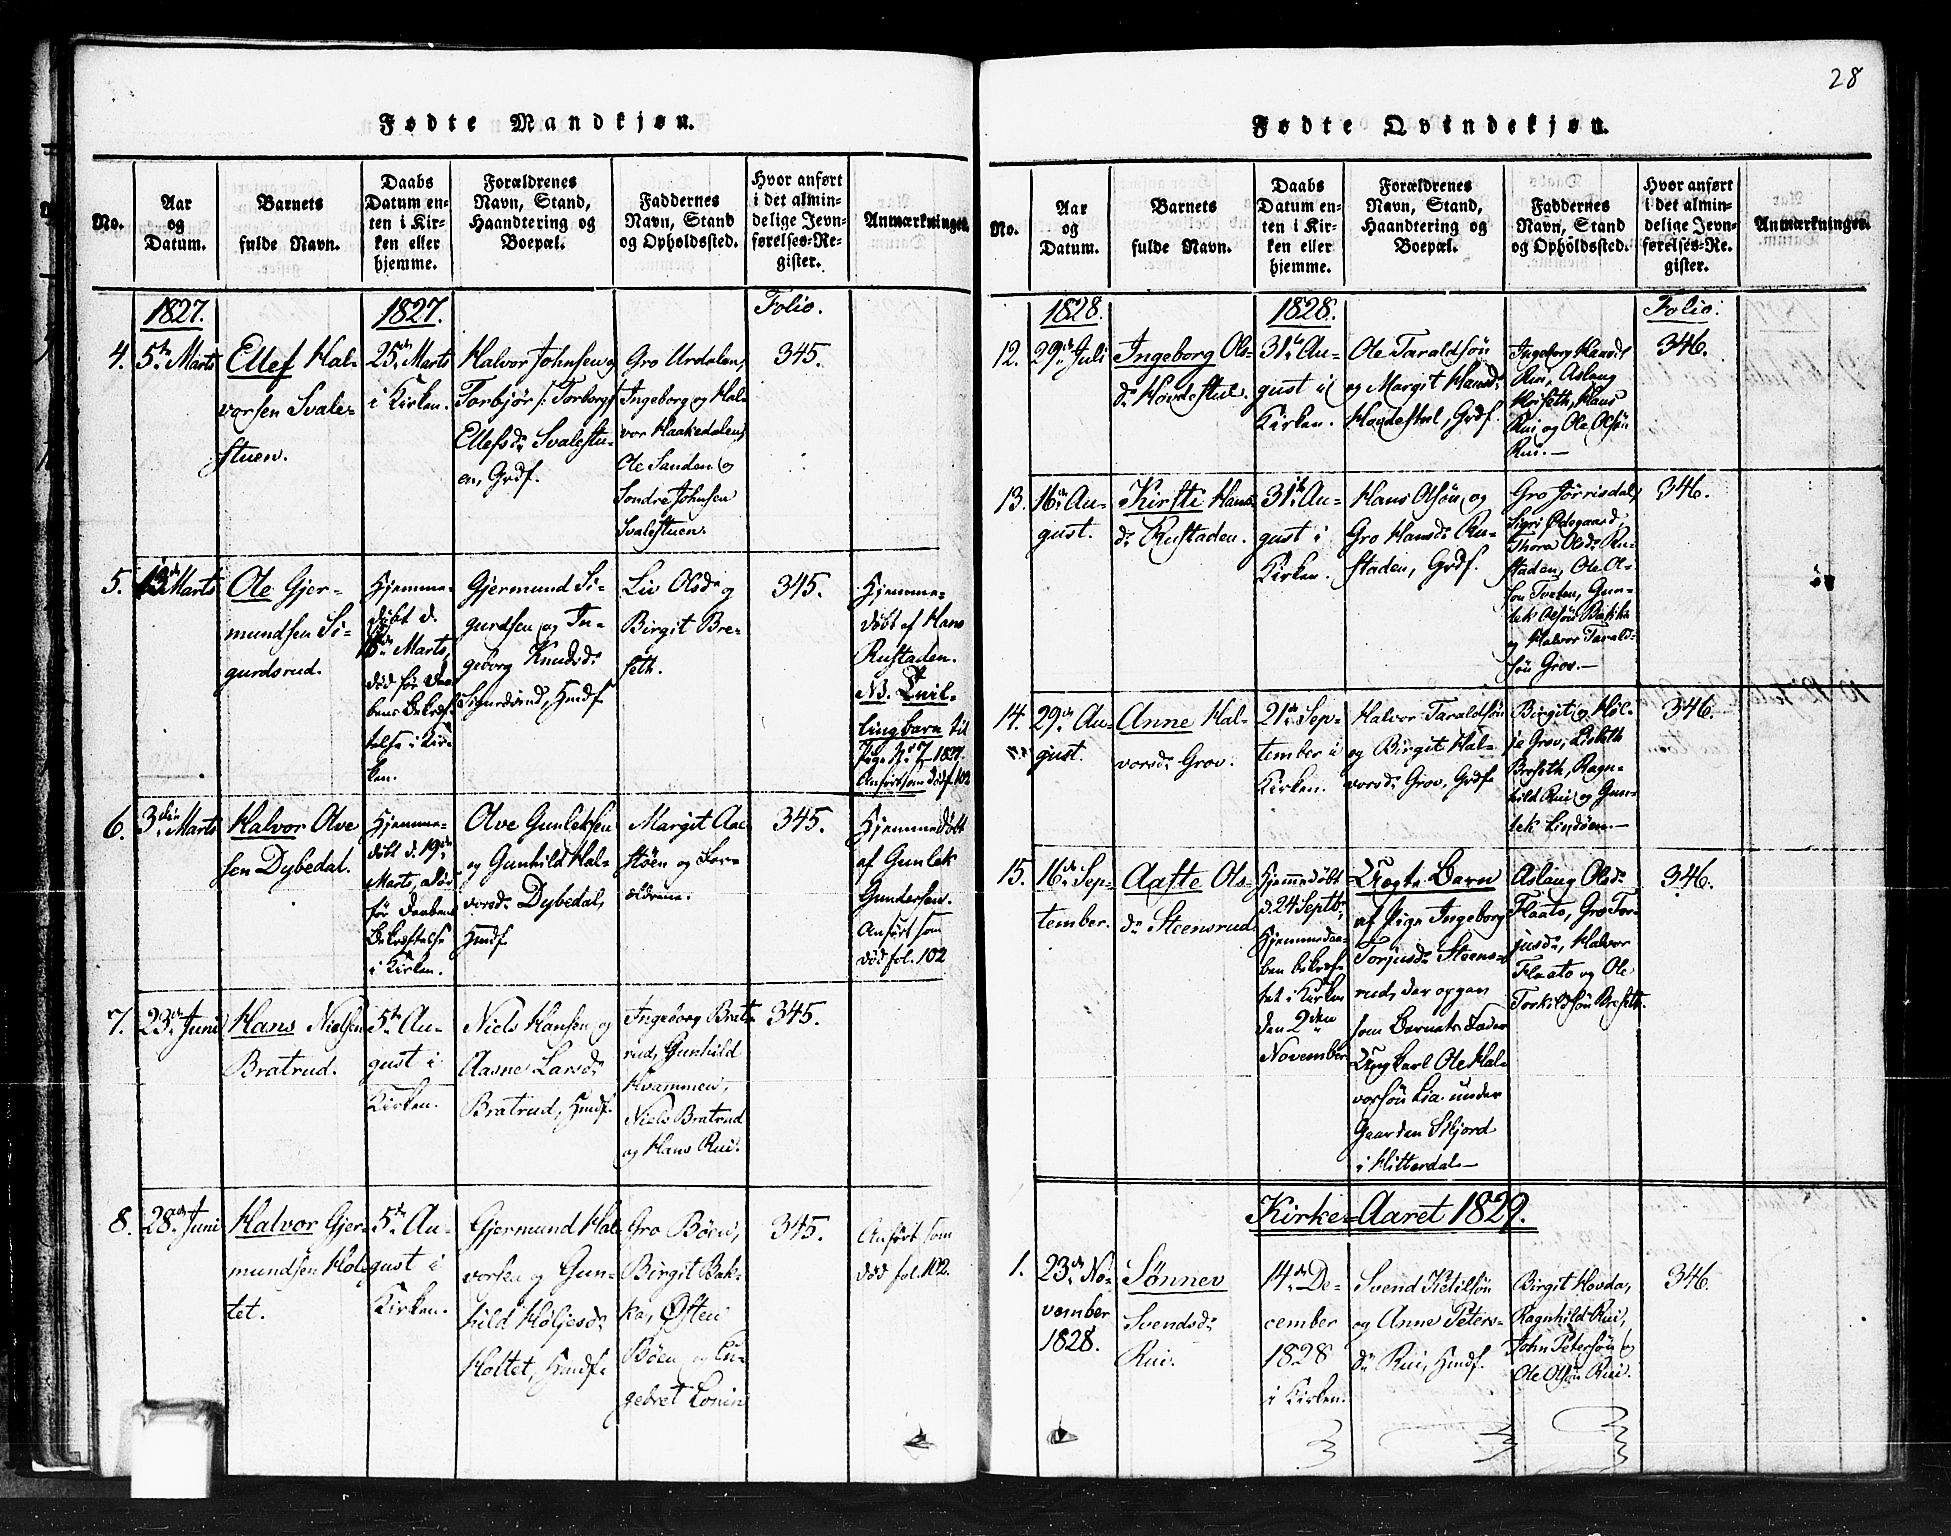 28
Fødte Mandkjøn.
No.
Aar
og
Datum.
Barnets
fulde Navn.
Daabs
Datum en-
ten i Kir-
ken eller
hjemme.
Forældrenes
Navn, Stand,
Haandtering og
Boepæl.
Faddernes
Navn, Stand
og Opholdssted.
Hvor anført
i det almin-
delige Jevn-
førelses-Re-
gister.
Anmærkninger.
1827.
1827.
Folio.
4.
5te Marts
Ellef Hal-
vorsen Svale-
stuen.
25de Marts
i Kirken.
Halvor Johnsen og
Torbjør /: Torborg/
Ellefsdr Svalestu-
en, Grdf.
Gro Urdalen,
Ingeborg og Hal-
vor Haakedalen,
Ole Sanden og
Sondre Johnsen
Svalestuen.
345.
5.
Marts
Ole Gjer-
mundsen Si-
gurdsrud.
Hjemme-
døbt d.
Marts,
død før Daa-
bens Bekræf-
telse i Kir-
ken.
Gjermund Si-
gurdsen og In-
geborg Knudsdr
Sigurdsrud, Hmdf.
Liv Olsdr og
Birgit Bre-
seth.
345.
Hjemme-
døbt af Hans
Rustaden.
NB. Tvil-
lingbarn til
Pige No 7 1827.
Anført som død f. 102
6.
3die Marts
Halvor Olve
sen Dybedal.
Hjemme-
døbt d. 19de
Marts, død
før Daabens
Bekræftelse
i Kirken.
Olve Gunleksen
og Gunhild Hal-
vorsdr Dybedal,
Hmdf.
Margit Aa
støen og For-
ældrene.
345.
Hjemmedøbt
af Gunlek
Gundersen.
Anført som
død fol. 102
7.
23de Juni
Hans Nielsen
Bratrud.
5te Au-
gust i
Kirken.
Niels Hansen og
Aasne Larsdr
Bratrud, Hmdf.
Ingeborg Brat-
rud, Gunhild
Kvammen,
Niels Bratrud
og Hans Rui.
345.
8.
28de Juni
Halvor Gjer-
mundsen Hol-
tet.
5te Au-
gust i
Kirken.
Gjermund Hal
vorsen og Gun-
hild Høljesdr
Holtet, Hmdf.
Gro Bøen,
Birgit Bak-
ka, Østen
Bøen og En-
gebret Lonin
345.
Anført som
død fol. 102.
Fødte Qvindekjøn.
No.
Aar
og
Datum.
Barnets
fulde Navn.
Daabs
Datum en-
ten i Kir-
ken eller
hjemme.
Forældrenes
Navn, Stand,
Haandtering og
Boepæl.
Faddernes
Navn, Stand
og Opholdssted.
Hvor anført
i det almin-
delige Jevn-
førelses-Re-
gister.
Anmærkninger.
1828.
1828.
Folio.
12.
29de Juli
Ingeborg Ols-
dr Hovdestul.
31te Au-
gust i
Kirken.
Ole Taraldsøn
og Margit Hansdr
Hovdestul, Grdf.
Ingeborg Hansdr
Rui, Aslaug
Hans
Rui og Ole Olsøn
Rui.—
346.
13.
16de Au-
gust.
Kirsti Hans
dr Rustaden.
31te Au-
gust i
Kirken.
Hans Olsøn og
Gro Hansdr Ru-
staden, Grdf.
Gro Jørrisdal,
Sigri Ødegaard,
Thora Olsdr Ru-
staden, Ole Ol-
søn Tveten, Gun-
lek Olsøn Bakka
og Halvor Tarald-
søn Grov.—
346.
14.
29de Au-
gust.
Anne Hal-
vorsdr Grov.
21de Sep-
tember i
Kirken.
Halvor Taraldsøn
og Birgit Hal-
vorsdr Grov, Grdf.
Birgit og Høl-
je Grov, Lisbeth
Breseth, Ragn-
hild Rui og Gun-
lek Lindøen.—
346.
15.
16de Sep-
tember.
Aaste Ols-
dr Steensrud.
Hjemmedøbt
d. 24 Septbr,
Hjemmedaa-
ben bekræf-
tet i Kirken
den 2den
November
Uægte Barn
af Pige Ingeborg
Torjusdr Steens-
rud, der opgav
som Barnets Fader
Ungkarl Ole Hal-
vorsøn Lia under
Gaarden Skjord
i Hitterdal.—
Aslaug Olsdr
Flaato, Gro Tor-
jusdr, Halvor
Flaato og Ole
Torkildsøn Breseth.
346.
Kirke-Aaret 1829.
1.
23de No-
vember
1828.
Sønnev
Svendsdr
Rui.
14de De-
cember
1828
i Kirken.
Svend Ketilsøn
og Anne Peters-
dr Rui, Hmdf.
Birgit Hovda,
Ragnhild Rui,
John Petersøn og
Ole Olsøn Rui.
346.